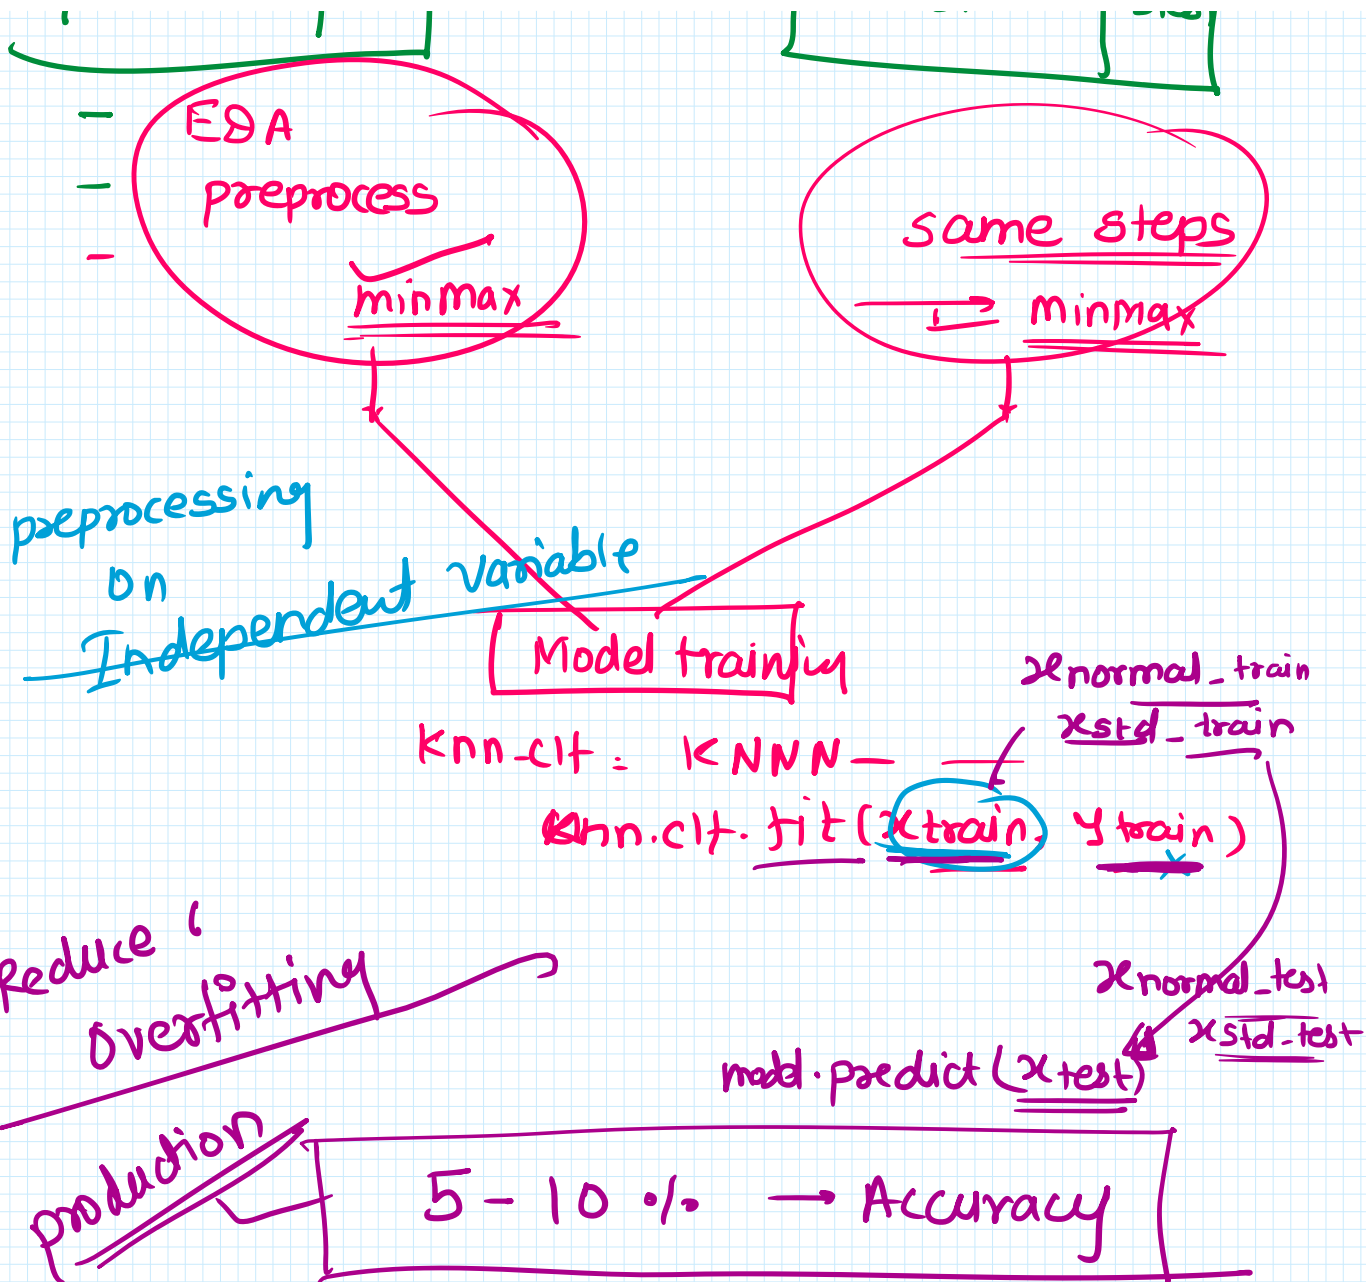 EDA
preprocess
minmax
same steps
minmax
preprocessing
on
Independent variable
Model training
xnormal_train
xstd_train
Knn-clf = KNNN
Knn.clf.fit(xtrain, ytrain)
Reduce
overfitting
xnormal_test
xstd-test
model.predict(xtest)
production
5-10% → Accuracy